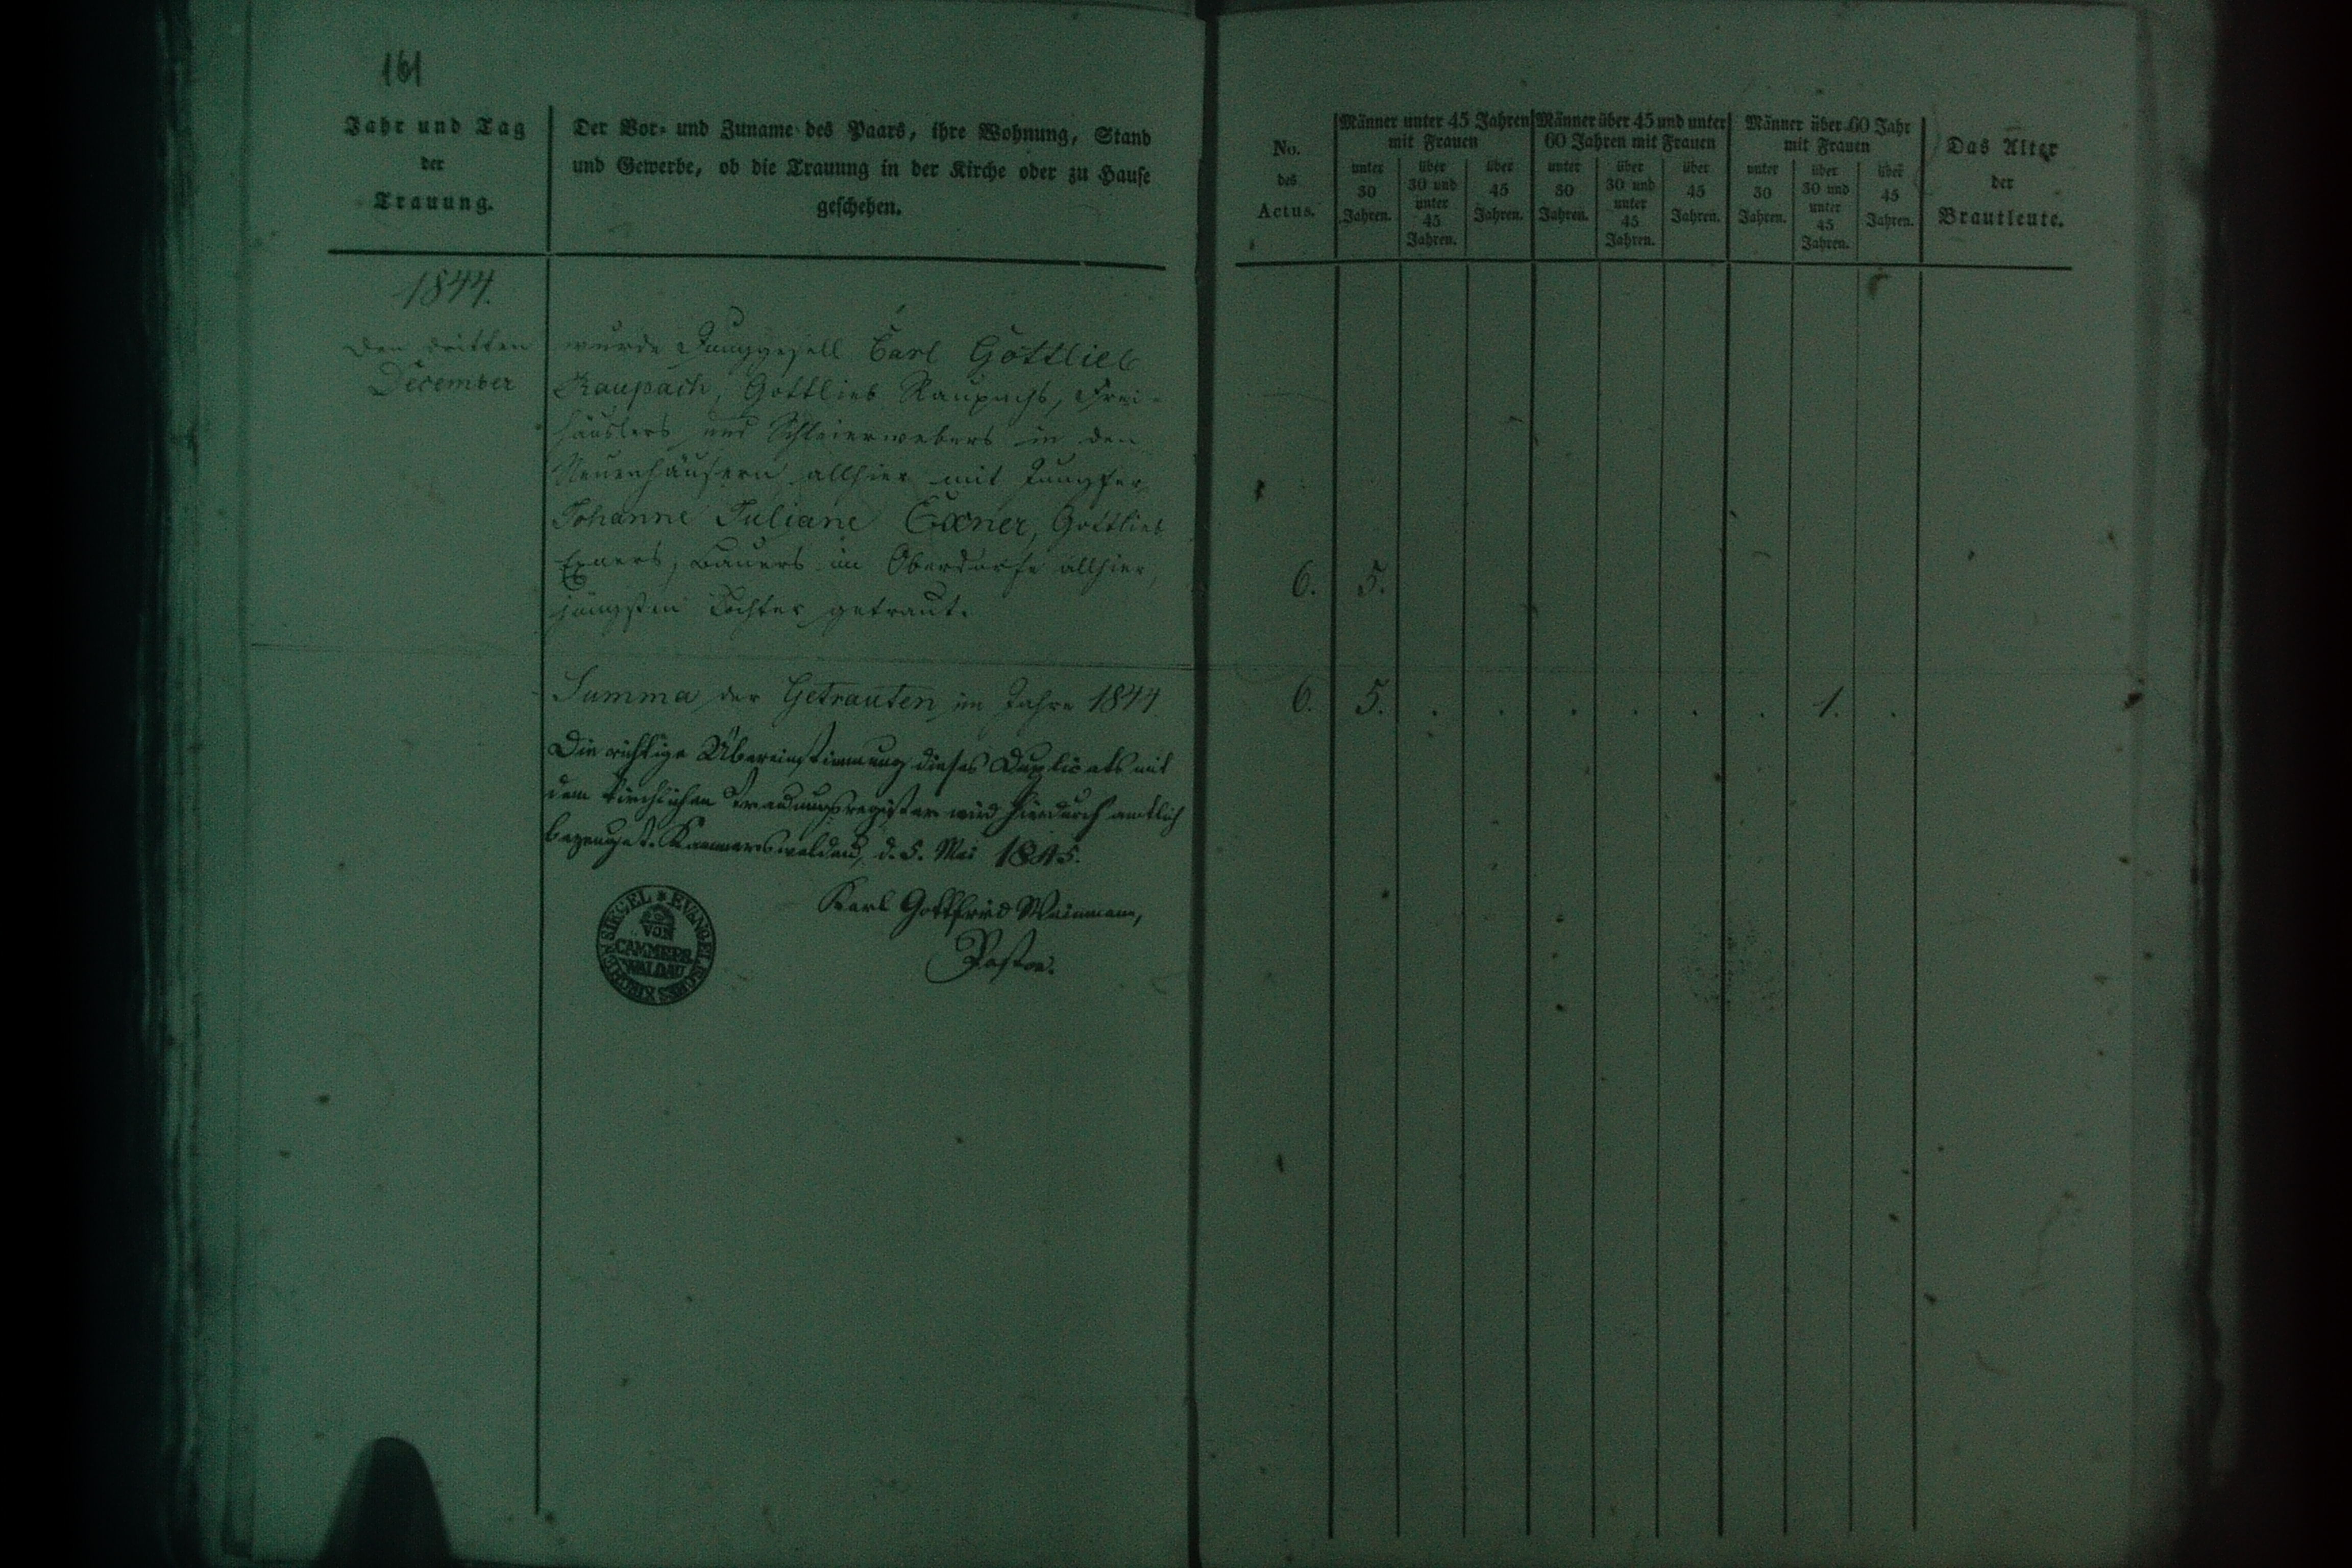 161
Jahr und Tag
der
Trauung.
Der Vor- und Zuname des Paars, ihre Wohnung, Stand
und Gewerbe, ob die Trauung in der Kirche oder zu Hause
geschehen.
1844.
Den dritten
December
wurde Junggesell Carl Gottlieb
Raupach, Gottlieb Raupachs, Frei-
häuslers und Schleierwebers in den
Neuenhäusern allhier mit Jungfer
Johanne Juliane Exner, Gottlieb
Exners, Bauers im Oberdorfe allhier,
jüngsten Tochter getraut.
Summa der Getrauten im Jahre 1844.
Die richtige Übereinstimmung dieses Duplicats mit
dem kirchlichen Trauungsregister wird hierdurch amtlich
bezeuget. Kammerswaldau, d. 5. Mai 1845.
Karl Gottfried Weinmann,
Pastor.
SIEGEL * EVANGELISCHES KIRCHEN
VON
CAMMERS
WALDAU
No.
des
Actus.
Männer unter 45 Jahren
mit Frauen
unter
30
Jahren.
über
30 und
unter
45
Jahren.
über
45
Jahren.
Männer über 45 und unter
60 Jahren mit Frauen
unter
30
Jahren.
über
30 und
unter
45
Jahren.
über
45
Jahren.
Männer über 60 Jahr
mit Frauen
unter
30
Jahren.
über
30 und
unter
45
Jahren.
über
45
Jahren.
Das Alter
der
Brautleute.
6. 5.
6. 5. . . . . . . 1. .